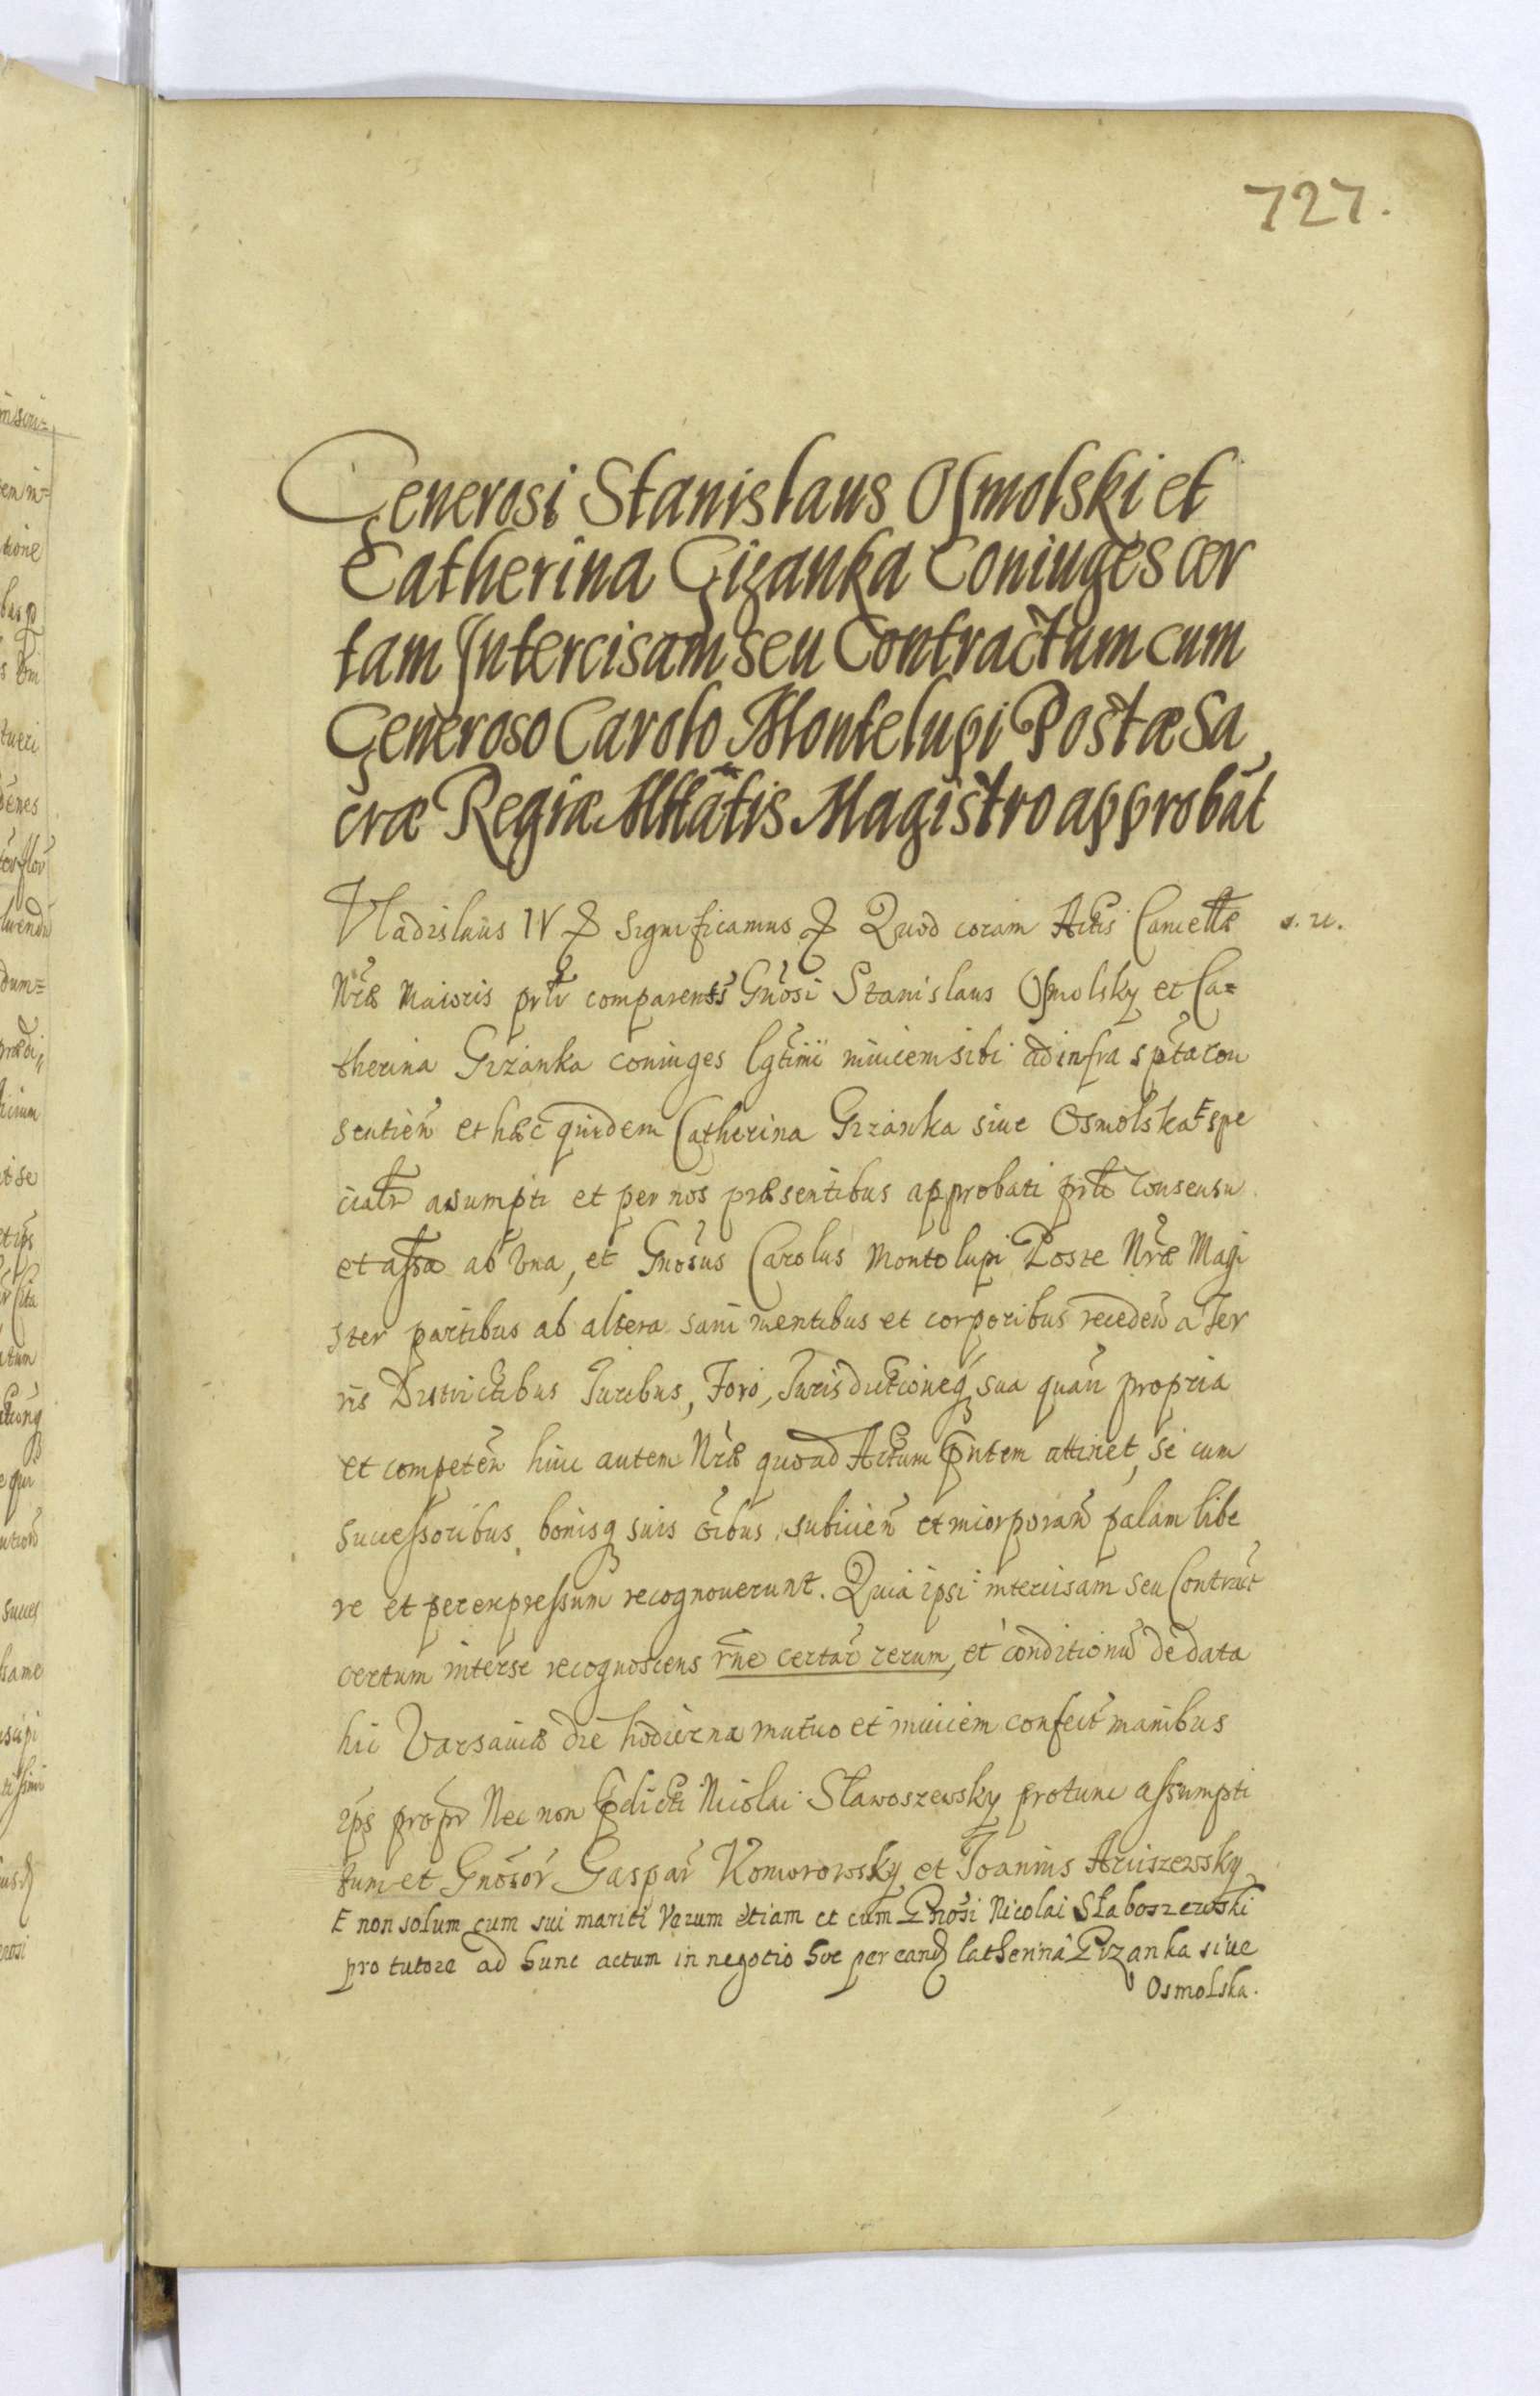 727.
Generosi Stanislaus Osmolski et
Catherina Gizanka Coniuges cer
tam Intercisam seu Contractum cum
Generoso Carolo Montelupi Postæ Sa
cræ Regiæ Mttãtis Magistro approbãt
Vladislaus IV significamus Quod coram Actis Cancellæ s. r.
Nræ Maioris prlr comparents Gnosi Stanislaus Osmolsky et Ca=
therina Gizanka coniuges lgtimi inuicem sibi ad infra spta con
sentien et hæc quidem Catherina Gizanka siue Osmolska F spe
cialr asumpti et per nos præsentibus approbati prlr consensu
et assa ab vna, et Gnosus Carolus Montolupi Poste Nræ Magi
ster partibus ab altera sani mentibus et corporibus receden a Ter
ris Districtibus Iuribus, Foro, Iurisdictioneq sua quan propria
et competen huic autem Nræ quoad Actum pntem attinet, se cum
successoribus bonisq suis oibus subiicien et incorporan palam libe
re et per expressum recognouerunt. Quia ipsi intercisam seu Contract
certum interse recognoscens rne certar rerum, et conditionu de data
hic Varsauiæ die hodierna mutuo et inuicem confect manibus
ips propr Nec non pdicti Nicolai Slawoszewsky protunc assumpti
tum et Gnosor Gaspar Komorowsky et Ioannis Aruiszewsky
F non solum cum sui mariti Verum etiam et cum Gnosi Nicolai Slaboszewski
pro tutore ad hunc actum in negotio hoc per eand Catherina Gizanka siue
Osmolska.